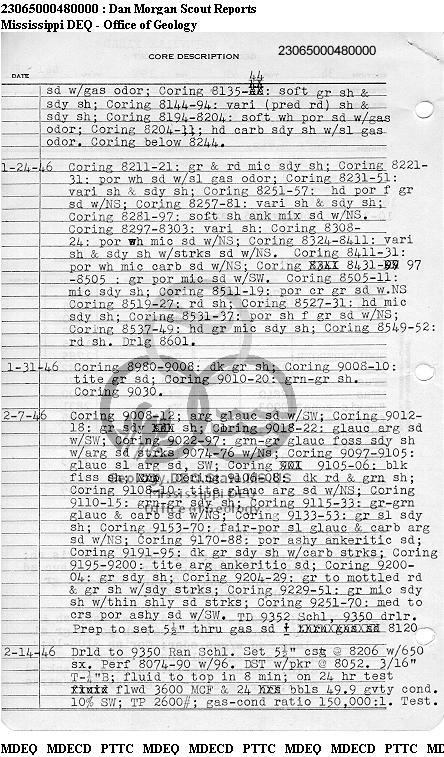 23065000480000 : Dan Morgan Scout Reports
Mississippi DEQ - Office of Geology
CORE DESCRIPTION 23065000480000
DATE
44
sd w/gas odor; Coring 8135-: soft gr sh &
sdy sh; Coring 8144-94: vari (pred rd) sh &
sdy sh; Coring 8194-8204: soft wh por sd w/gas
odor; Coring 8204-11; hd carb sdy sh w/sl gas
odor. Coring below 8244.
1-24-46 Coring 8211-21: gr & rd mic sdy sh; Coring 8221-
31: por wh sd w/sl gas odor; Coring 8231-51:
vari sh & sdy sh; Coring 8251-57: hd por f gr
sd w/NS; Coring 8257-81: vari sh & sdy sh;
Coring 8281-97: soft sh ank mix sd w/NS.
Coring 8297-8303: vari sh: Coring 8308-
24: por wh mic sd w/NS; Coring 8324-8411: vari
sh & sdy sh w/strks sd w/NS. Coring 8411-31:
por wh mic carb sd w/NS; Coring 8431- 97
-8505 : gr por mic sd w/SW. Coring 8505-11:
mic sdy sh; Coring 8511-19: por cr gr sd w.NS
Coring 8519-27: rd sh; Coring 8527-31: hd mic
sdy sh; Coring 8531-37: por sh f gr sd w/NS;
Coring 8537-49: hd gr mic sdy sh; Coring 8549-52:
rd sh. Drlg 8601.
1-31-46 Coring 8980-9008: dk gr sh; Coring 9008-10:
tite gr sd; Coring 9010-20: grn-gr sh.
Coring 9030.
2-7-46 Coring 9008-12; arg glauc sd w/SW; Coring 9012-
18: gr sdy sh; Coring 9018-22: glauc arg sd
w/SW; Coring 9022-97: grn-gr glauc foss sdy sh
w/arg sd strks 9074-76 w/Ns; Coring 9097-9105:
glauc sl arg sd, SW; Coring 9105-06: blk
fiss sh; Coring 9106-08: dk rd & grn sh;
Coring 9108-10: tite glauc arg sd w/NS; Coring
9110-15: grn-gr sdy sh; Coring 9115-33: gr-grn
glauc & carb sd w/NS; Coring 9133-53: gr sl sdy
sh; Coring 9153-70: fair-por sl glauc & carb arg
sd w/NS; Coring 9170-88: por ashy ankeritic sd;
Coring 9191-95: dk gr sdy sh w/carb strks; Coring
9195-9200: tite arg ankeritic sd; Coring 9200-
04: gr sdy sh; Coring 9204-29: gr to mottled rd
& gr sh w/sdy strks; Coring 9229-51: gr mic sdy
sh w/thin shly sd strks; Coring 9251-70: med to
crs por ashy sd w/SW. TD 9352 Schl, 9350 drlr.
Prep to set 5½" thru gas sd 8120
2-14-46 Drld to 9350 Ran Schl. Set 5½" csg @ 8206 w/650
sx. Perf 8074-90 w/96. DST w/pkr @ 8052. 3/16"
T-¼"B; fluid to top in 8 min; on 24 hr test
flwd 3600 MCF & 24 bbls 49.9 gvty cond.
10% SW; TP 2600#; gas-cond ratio 150,000:1. Test.
MDEQ MDECD PTTC MDEQ MDECD PTTC MDEQ MDECD PTTC MDEQ MDECD PTTC M